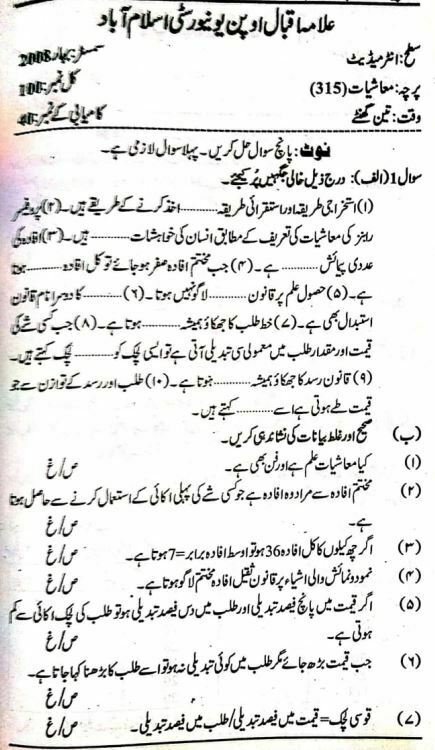 علامہ اقبال اوپن یونیورسٹی اسلام آباد
سطح: انٹرمیڈیٹ سمسٹر: بہار 2008
پرچہ: معاشیات (315) کل نمبر: 100
وقت: تین گھنٹے کامیابی کے نمبر: 40
نوٹ: پانچ سوال حل کریں۔ پہلا سوال لازمی ہے۔
سوال 1 (الف): درج ذیل خالی جگہیں پُر کیجئے۔
(۱) استخراجی طریقہ اور استقرائی طریقہ .......... اخذ کرنے کے طریقے ہیں۔ (۲) پروفیسر
رابنز کی معاشیات کی تعریف کے مطابق انسان کی خواہشات .......... ہیں۔ (۳) افادہ کی
عددی پیمائش .......... ہے۔ (۴) جب مختتم افادہ صفر ہو جائے تو کل افادہ .......... ہوتا
ہے۔ (۵) حصول علم پر قانون .......... لاگو نہیں ہوتا۔ (۶) .......... کا دوسرا نام قانون
استبدال بھی ہے۔ (۷) خط طلب کا جھکاؤ ہمیشہ .......... ہوتا ہے۔ (۸) جب کسی شے کی
قیمت اور مقدار طلب میں معمولی سی تبدیلی آتی ہے تو ایسی لچک کو .......... لچک کہتے ہیں۔
(۹) قانون رسد کا جھکاؤ ہمیشہ .......... ہوتا ہے۔ (۱۰) طلب اور رسد کے توازن سے جو
قیمت طے ہوتی ہے اسے .......... کہتے ہیں۔
(ب) صحیح اور غلط بیانات کی نشاندہی کریں۔
(۱) کیا معاشیات علم ہے اور فن بھی ہے۔ ص/غ
(۲) مختتم افادہ سے مراد وہ افادہ ہے جو کسی شے کی پہلی اکائی کے استعمال کرنے سے حاصل ہوتا
ہے۔ ص/غ
(۳) اگر چھ کیلوں کا کل افادہ 36 ہو تو اوسط افادہ برابر =7 ہوتا ہے۔ ص/غ
(۴) نمود و نمائش والی اشیاء پر قانون تقلیل افادہ مختتم لاگو ہوتا ہے۔ ص/غ
(۵) اگر قیمت میں پانچ فیصد تبدیلی اور طلب میں دس فیصد تبدیلی ہو تو طلب کی لچک اکائی سے کم
ہوتی ہے۔ ص/غ
(۶) جب قیمت بڑھ جائے مگر طلب میں کوئی تبدیلی نہ ہو تو اسے طلب کا بڑھنا کہا جاتا ہے۔
ص/غ
(۷) قوسی لچک = قیمت میں فیصد تبدیلی/طلب میں فیصد تبدیلی۔ ص/غ